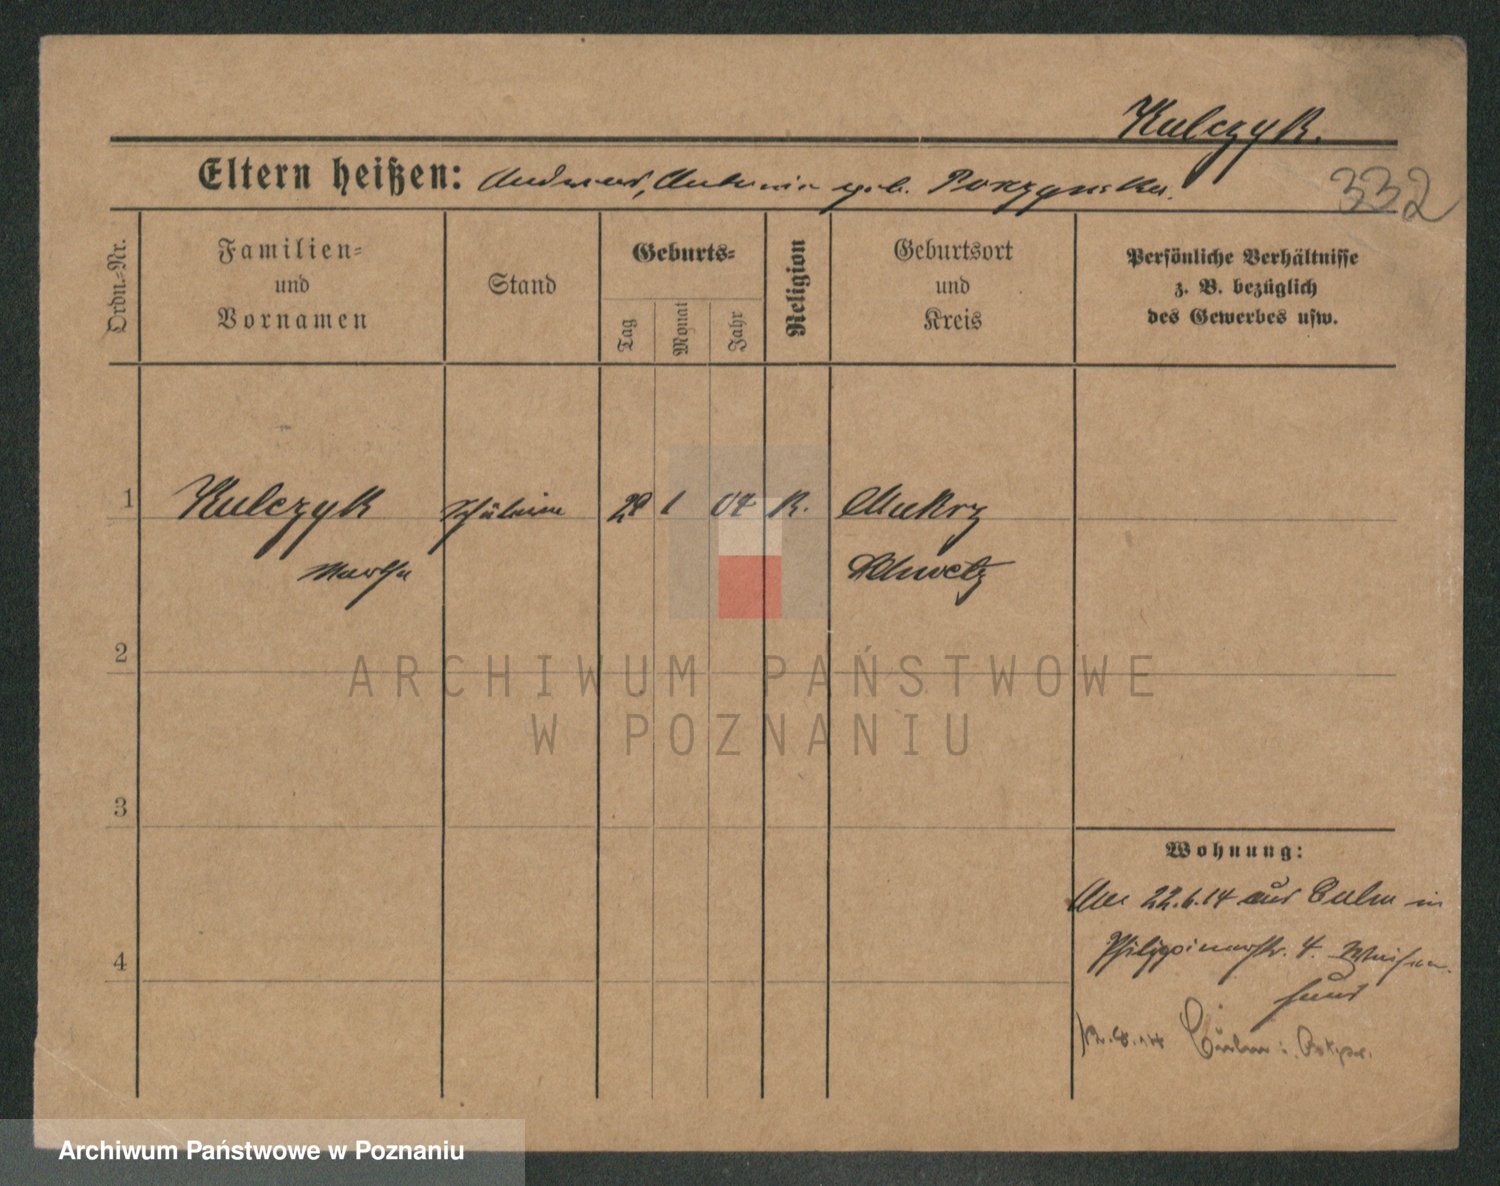 Kulczyk.
Eltern heißen: Andreas, Antonie geb. Poczynska.
332
Ordn.-Nr.
Familien-
und
Vornamen
Stand
Geburts-
Tag
Monat
Jahr
Religion
Geburtsort
und
Kreis
Persönliche Verhältnisse
z. B. bezüglich
des Gewerbes usw.
1
Kulczyk Schülerin 29 1 04 K. Mukrz
Martha Schwetz
2
ARCHIWUM PAŃSTWOWE
W POZNANIU
3
Wohnung:
22.6.14 aus Culm in
Philippinenstr. 4. Waisen-
haus
4
8.14 Culm i.
Archiwum Państwowe w Poznaniu